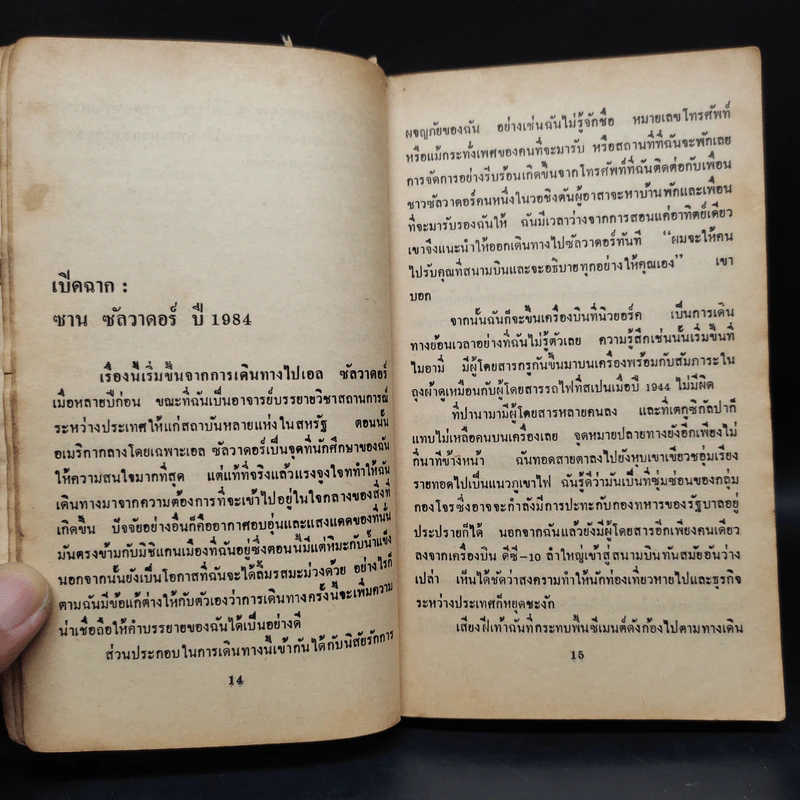 เปิดฉาก :
ซาน ซัลวาดอร์ ปี 1984
เรื่องนี้เริ่มขึ้นจากการเดินทางไปเอล ซัลวาดอร์
เมื่อหลายปีก่อน ขณะที่ฉันเป็นอาจารย์บรรยายวิชาสถานการณ์
ระหว่างประเทศให้แก่สถาบันหลายแห่งในสหรัฐ ตอนนั้น
อเมริกากลางโดยเฉพาะเอล ซัลวาดอร์เป็นจุดที่นักศึกษาของฉัน
ให้ความสนใจมากที่สุด แต่แท้ที่จริงแล้วแรงจูงใจที่ทำให้ฉัน
เดินทางมาจากความต้องการที่จะเข้าไปอยู่ในใจกลางของสิ่งที่
เกิดขึ้น ปัจจัยอย่างอื่นก็คืออากาศอบอุ่นและแสงแดดของที่นั้น
มันตรงข้ามกับมิชิแกนเมืองที่ฉันอยู่ซึ่งตอนนี้มีแต่หิมะกับน้ำแข็ง
นอกจากนั้นยังเป็นโอกาสที่ฉันจะได้ลิ้มรสมะม่วงด้วย อย่างไรก็
ตามฉันมีข้อแก้ต่างให้กับตัวเองว่าการเดินทางครั้งนี้จะเพิ่มความ
น่าเชื่อถือให้คำบรรยายของฉันได้เป็นอย่างดี
ส่วนประกอบในการเดินทางนี้เข้ากันได้กับนิสัยรักการ
14
ผจญภัยของฉัน อย่างเช่นฉันไม่รู้จักชื่อ หมายเลขโทรศัพท์
หรือแม้กระทั่งเพศของคนที่จะมารับ หรือสถานที่ที่ฉันจะพักเลย
การจัดการอย่างรีบร้อนเกิดขึ้นจากโทรศัพท์ที่ฉันติดต่อกับเพื่อน
ชาวซัลวาดอร์คนหนึ่งในวอชิงตันผู้อาสาจะหาบ้านพักและเพื่อน
ที่จะมารับรองฉันให้ ฉันมีเวลาว่างจากการสอนแค่อาทิตย์เดียว
เขาจึงแนะนำให้ออกเดินทางไปซัลวาดอร์ทันที "ผมจะให้คน
ไปรับคุณที่สนามบินและจะอธิบายทุกอย่างให้คุณเอง" เขา
บอก
จากนั้นฉันก็จะขึ้นเครื่องบินที่นิวยอร์ค เป็นการเดิน
ทางย้อนเวลาอย่างที่ฉันไม่รู้ตัวเลย ความรู้สึกเช่นนั้นเริ่มขึ้นที่
ไมอามี่ มีผู้โดยสารกรูกันขึ้นมาบนเครื่องพร้อมกับสัมภาระใน
ถุงผ้าดูเหมือนกับผู้โดยสารรถไฟที่สเปนเมื่อปี 1944 ไม่มีผิด
ที่ปานามามีผู้โดยสารหลายคนลง และที่เตกูซิกัลปาก็
แทบไม่เหลือคนบนเครื่องเลย จุดหมายปลายทางยังอีกเพียงไม่
กี่นาทีข้างหน้า ฉันทอดสายตาลงไปยังหุบเขาเขียวชอุ่มเรียง
รายทอดไปเป็นแนวภูเขาไฟ ฉันรู้ดีว่ามันเป็นที่ซุ่มซ่อนของกลุ่ม
กองโจรซึ่งอาจจะกำลังมีการปะทะกับกองทหารของรัฐบาลอยู่
ประปรายก็ได้ นอกจากฉันแล้วยังมีผู้โดยสารอีกเพียงคนเดียว
ลงจากเครื่องบิน ดีซี-10 ลำใหญ่เข้าสู่สนามบินทันสมัยอันว่าง
เปล่า เห็นได้ชัดว่าสงครามทำให้นักท่องเที่ยวหายไปและธุรกิจ
ระหว่างประเทศก็หยุดชะงัก
เสียงฝีเท้าฉันที่กระทบพื้นซีเมนต์ดังก้องไปตามทางเดิน
15